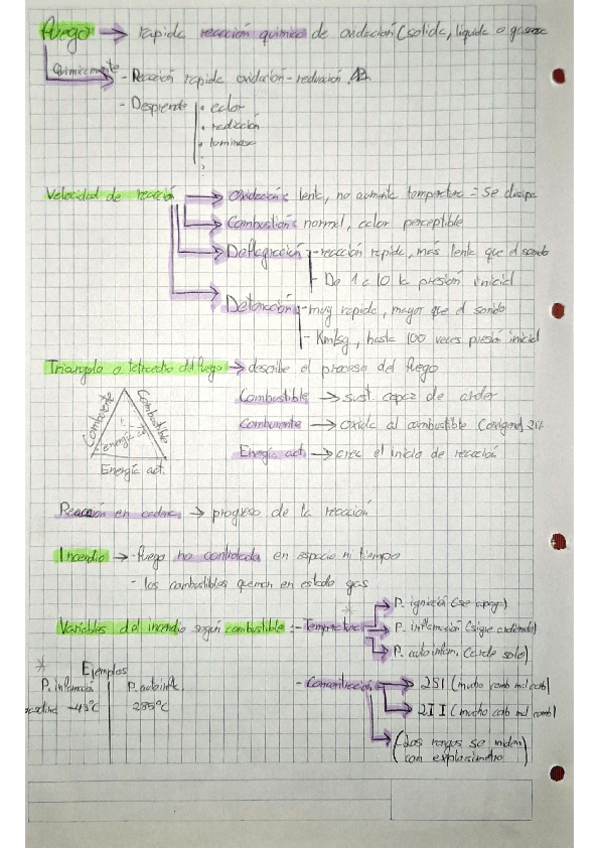 Fuego → rapida reacción quimica de oxidación (solida, liquida o gaseosa
Quimicamente
- Reacción rapida oxidación-reducción
- Desprende
• calor
• radiación
• luminosa
Velocidad de reacción → Oxidación: lenta, no aumenta temperatura = se disipa
→ Combustión: normal, calor perceptible
→ Deflagración - reacción rapida, más lenta que el sonido
- De 1 a 10 la presión inicial
→ Detonación: - muy rapida, mayor que el sonido
- Km/sg, hasta 100 veces presión inicial
Triangulo o tetraedro del fuego → describe el proceso del fuego
Combustible → sust. capaz de arder
Comburente → oxida al combustible (oxigeno) 21%
Energía act. → crea el inicio de reacción
Comburente
Combustible
energía act.
Energía act.
Reacción en cadena → progreso de la reacción
Incendio → - fuego no controlada en espacio ni tiempo
- los combustibles queman en estado gas
Variables del incendio según combustible: - Temperatura *
→ P. ignición (se apaga)
→ P. inflamación (sigue ardiendo)
→ P. autoinflam. (arde solo)
* Ejemplos
P. inflamación P. autoinfla.
-43°C 285°C
- Concentración → 2SI (mucho comb
→ 2II (mucho
→ (Los rangos se miden)
con explosimetro